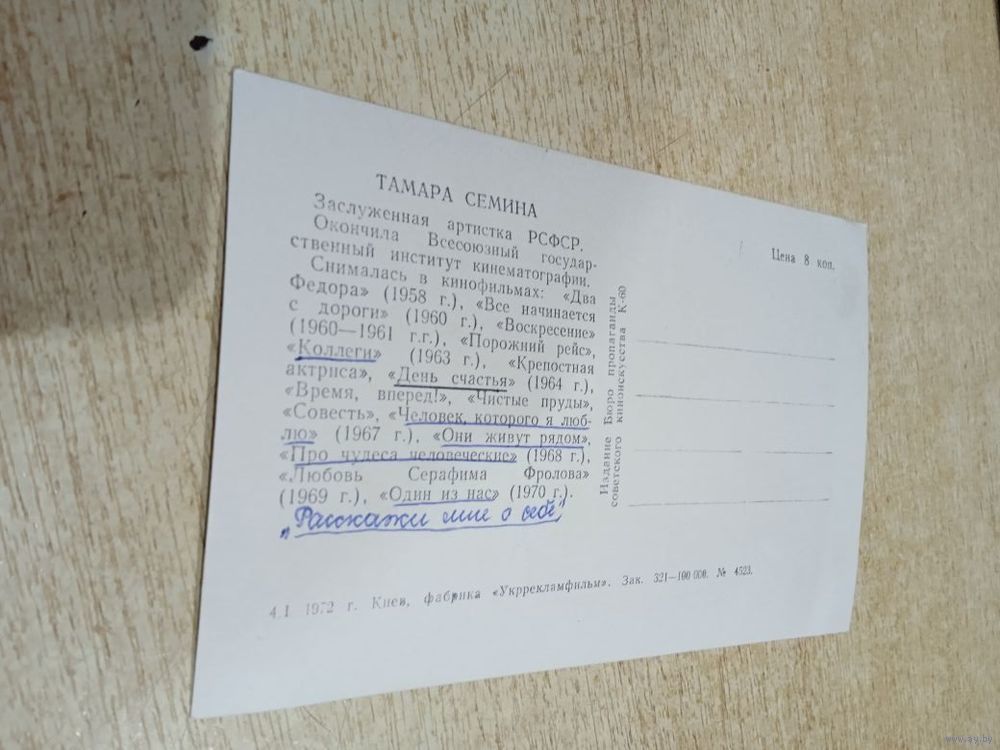 ТАМАРА СЕМИНА
Заслуженная артистка РСФСР.
Окончила Всесоюзный государ-
ственный институт кинематографии.
Снималась в кинофильмах: «Два
Федора» (1958 г.), «Все начинается
с дороги» (1960 г.), «Воскресение»
(1960—1961 г.г.), «Порожний рейс»,
«Коллеги» (1963 г.), «Крепостная
актриса», «День счастья» (1964 г.),
«Время, вперед!», «Чистые пруды»,
«Совесть», «Человек, которого я люб-
лю» (1967 г.), «Они живут рядом»,
«Про чудеса человеческие» (1968 г.),
«Любовь Серафима Фролова»
(1969 г.), «Один из нас» (1970 г.).
„Расскажи мне о себе"
4.I 1972 г. Киев, фабрика «Укррекламфильм». Зак. 321—100 000. № 4523.
Издание Бюро пропаганды
советского киноискусства К-60
Цена 8 коп.
www.ay.by